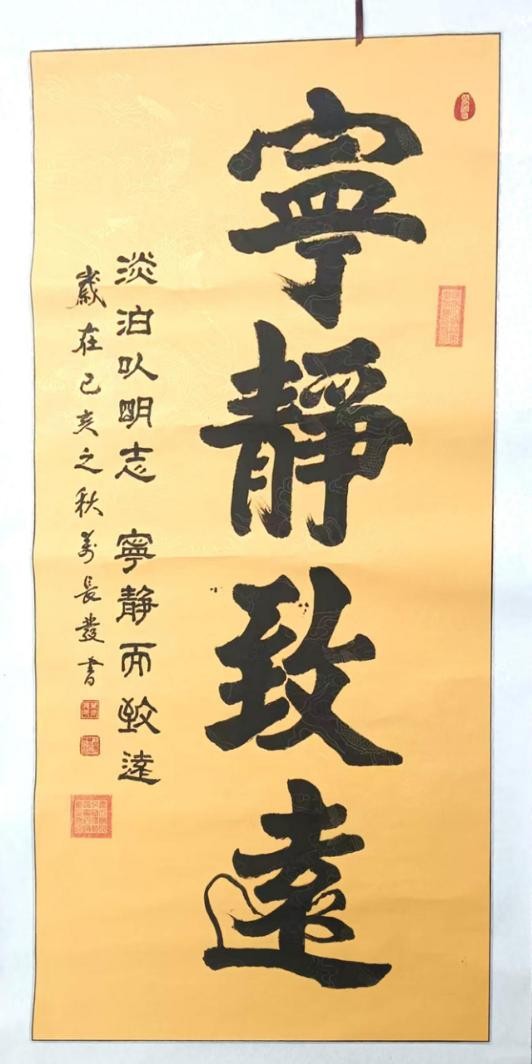 寧靜致遠
淡泊以明志 寧静而致遠
歲在己亥之秋萬長發書